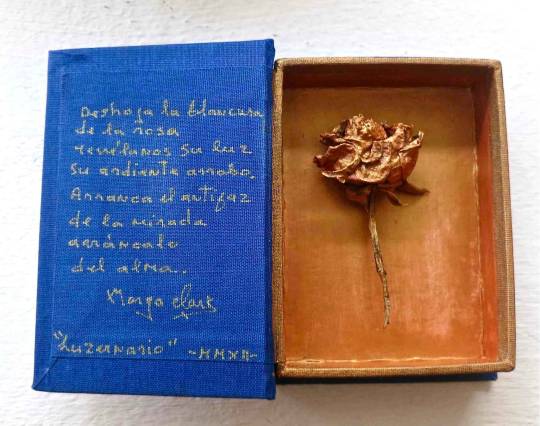 Deshoja la blancura
de la rosa
revélanos su luz
su ardiente arrobo.
Arranca el antifaz
de la mirada
arráncale
del alma.
Marga Clark
"Luzernario" -MMXII-